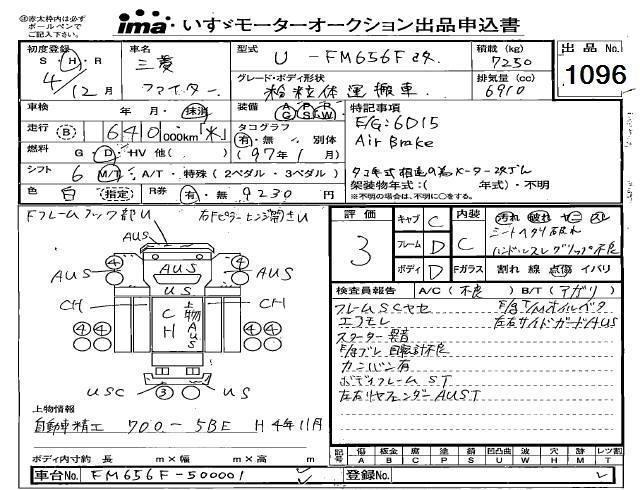 ㊟赤太枠内は必ずボールペンでご記入下さい。
ima いすゞモーターオークション出品申込書
初度登録 S・H・R 4/12月
車名 三菱 ファイター
型式 U-FM656F改
積載(kg) 7250
出品No. 1096
グレード・ボディ形状 粉粒体運搬車
排気量(cc) 6910
車検 年・月・抹消
装備 A/C P/S A/B P/W R
特記事項
E/G:6D15
Air Brake
タコ年式相違の為メーター改ざし
走行 B 640,000km「*」
タコグラフ 有・無 別体 (97年1月)
燃料 G・D・HV 他( )
シフト 6 M/T・A/T・特殊(2ペダル・3ペダル)
架装物年式:( 年式)・不明
※不明の場合は、不明に○をする。
色 白 指定 R券 有・無 9230円
Fフレームフック部U
評価 3
キャブ C
フレーム D
ボディ D
内装 C
汚れ 破れ ヤニ スレ
シートヘタリ破れ
ハンドルスレグリップ不良
Fガラス 割れ 線 点傷 イバリ
検査員報告 A/C(不良) B/T(アガリ)
フレームSCヤセ
エアモレ
スターター異音
カンバン有
ボディフレームST
左右リヤフェンダーAUST
左右サイドガードAUS
AUS
④ ④
AUS AUS AUS
US
CH CH
CH 上物AUS
④④ ④④
USC ③ US
上物情報
自動車精工 700-5BE H4年11月
ボディ内寸約 長 m×幅 m×高 m
記号 傷A 板金B 腐C 塗P 錆S 凹凸曲U 波W 穴H 跡M レツ割T
車台No. FM656F-500001
登録No.